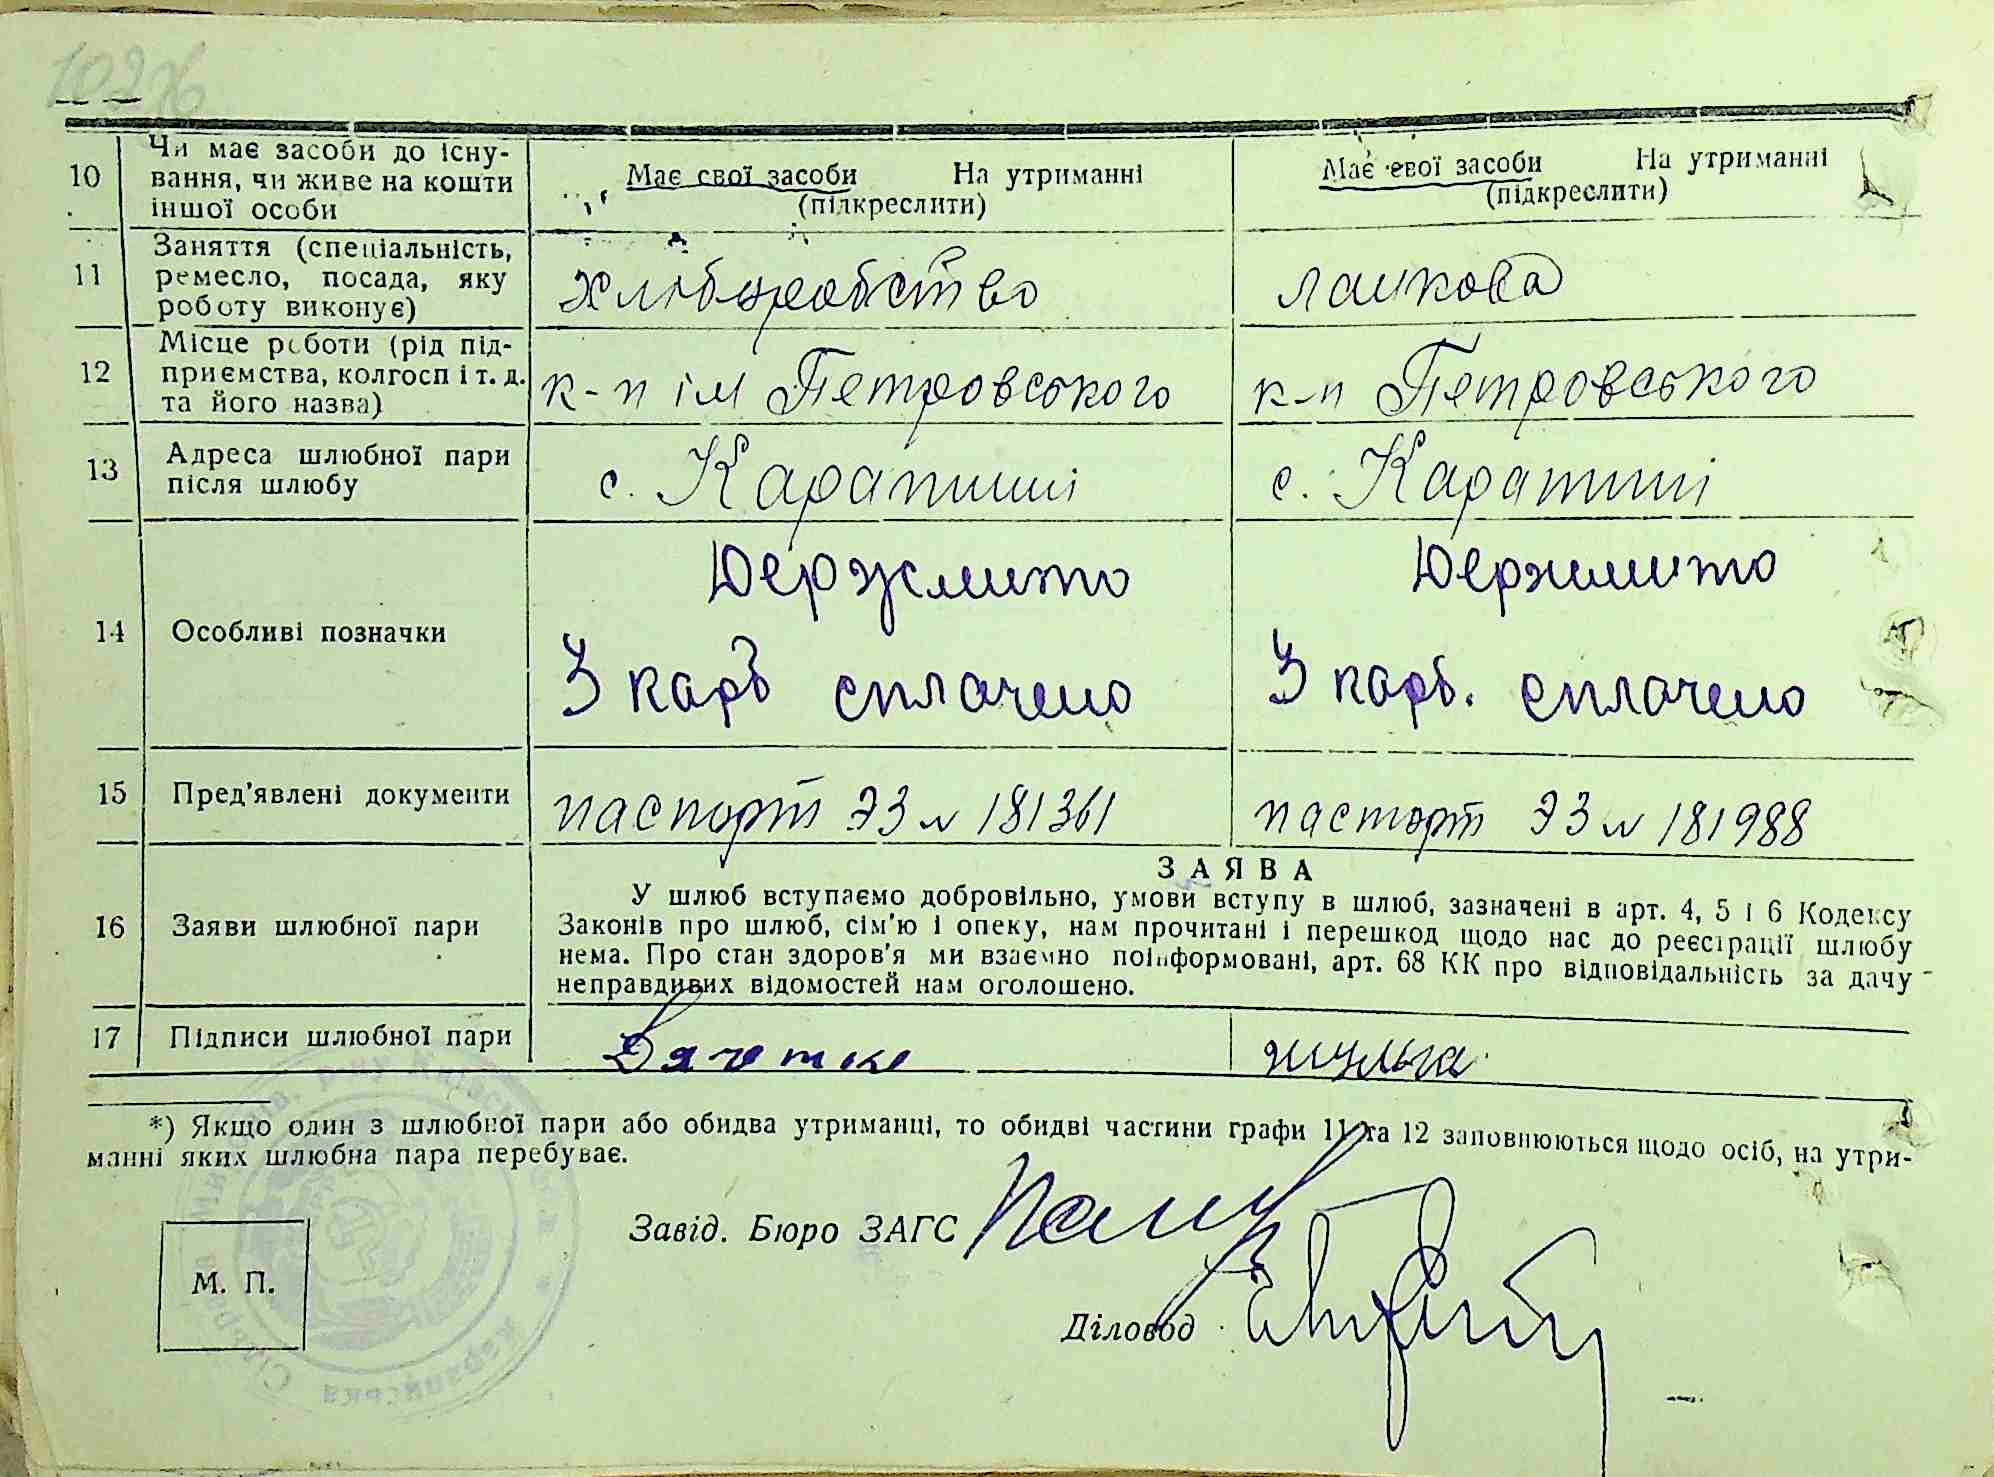 10 Чи має засоби до існу-
вання, чи живе на кошти
іншої особи
Має свої засоби На утриманні
(підкреслити)
Має свої засоби На утриманні
(підкреслити)
11 Заняття (спеціальність,
ремесло, посада, яку
роботу виконує)
хліборобство
ланкова
12 Місце роботи (рід під-
приємства, колгосп і т. д.
та його назва)
к-п ім Петровського
к-п Петровського
13 Адреса шлюбної пари
після шлюбу
с. Карапиші
с. Карапиші
14 Особливі позначки
Держмито
3 карб сплачено
Держмито
3 карб. сплачено
15 Пред'явлені документи
паспорт ЭЗ № 181361
паспорт ЭЗ № 181988
16 Заяви шлюбної пари
ЗАЯВА
У шлюб вступаємо добровільно, умови вступу в шлюб, зазначені в арт. 4, 5 і 6 Кодексу
Законів про шлюб, сім'ю і опеку, нам прочитані і перешкод щодо нас до реєстрації шлюбу
нема. Про стан здоров'я ми взаємно поінформовані, арт. 68 КК про відповідальність за дачу
неправдивих відомостей нам оголошено.
17 Підписи шлюбної пари
Жульга
*) Якщо один з шлюбної пари або обидва утриманці, то обидві частини графи 11 та 12 заповнюються щодо осіб, на утри-
манні яких шлюбна пара перебуває.
Завід. Бюро ЗАГС
М. П.
Діловод